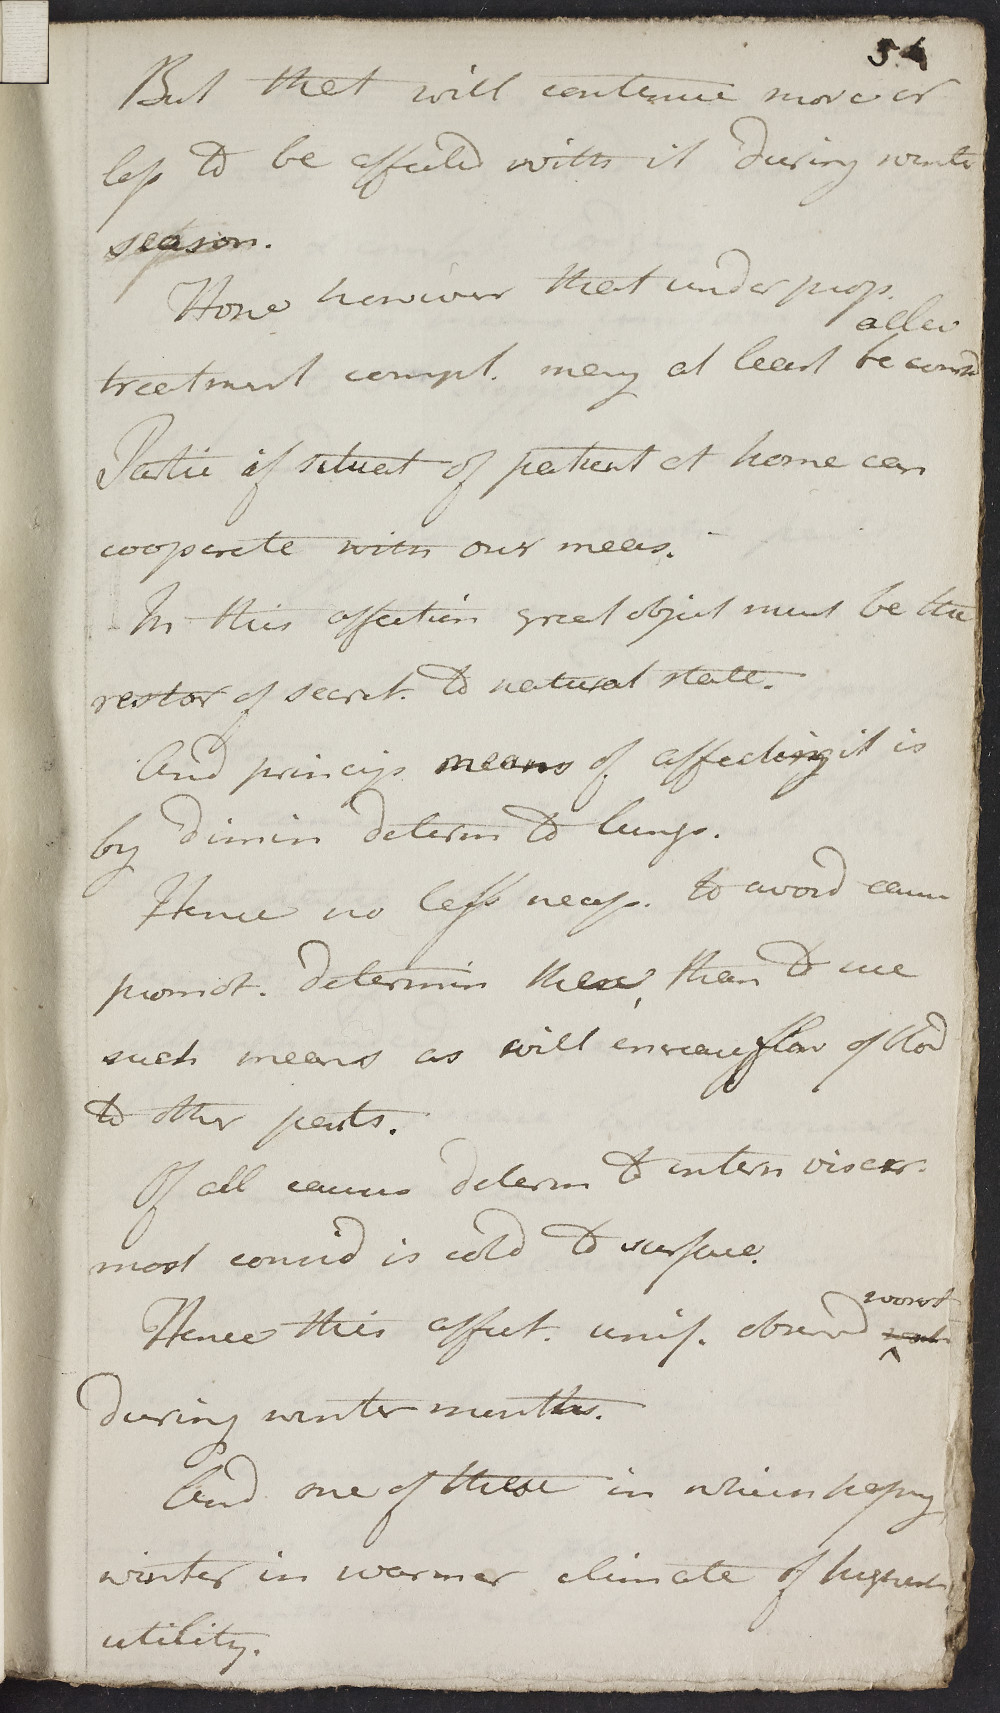 54
But that will continue more or
less to be affected with it during winter
season.
Hope however that under prop.
treatment compl. may at least be
allev
Partic if situat of patient at home can
cooperate with our meas.
In this affection great object must be the
restor of secret. to natural state.
And princip. means of affecting it is
by dimin determ to lungs.
Hence no less necess. to avoid causes
promot. determin there, than to use
such means as will increase flow of blod
to other parts.
Of all causes determ to intern viscer.
most consid is cold to surface.
Hence this affect. unif. observd
worst
during winter months.
And one of these in which passing
winter in warmer climate of highest
utility.